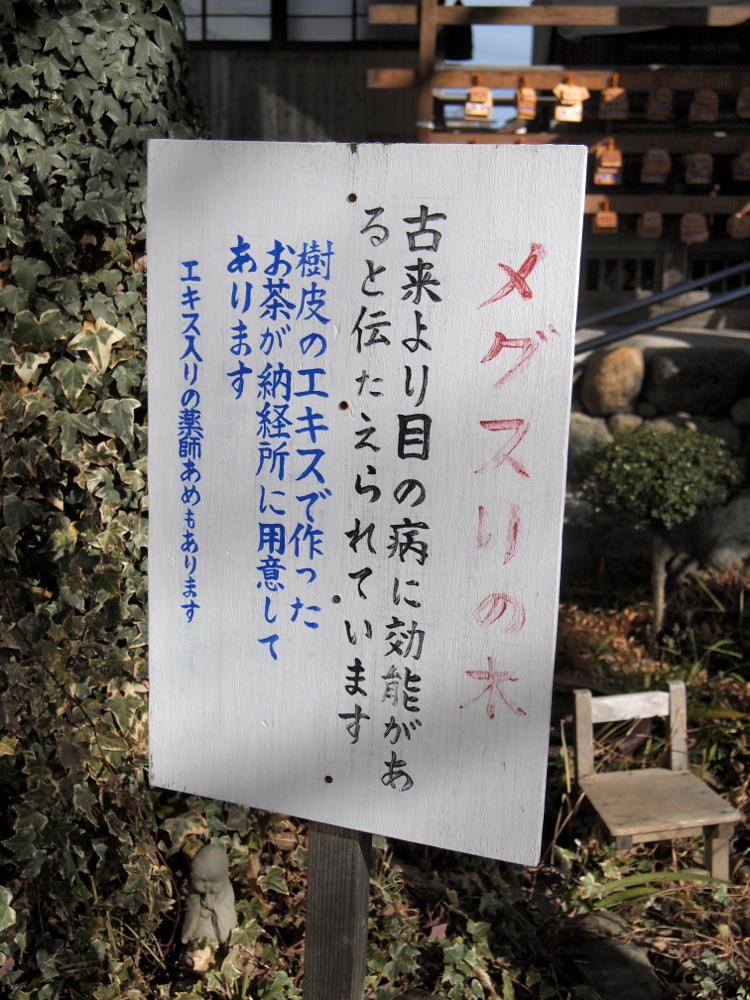 メグスリの木
古来より目の病に効能があ
ると伝たえられています
樹皮のエキスで作った
お茶が納経所に用意して
あります
エキス入りの薬師あめもあります